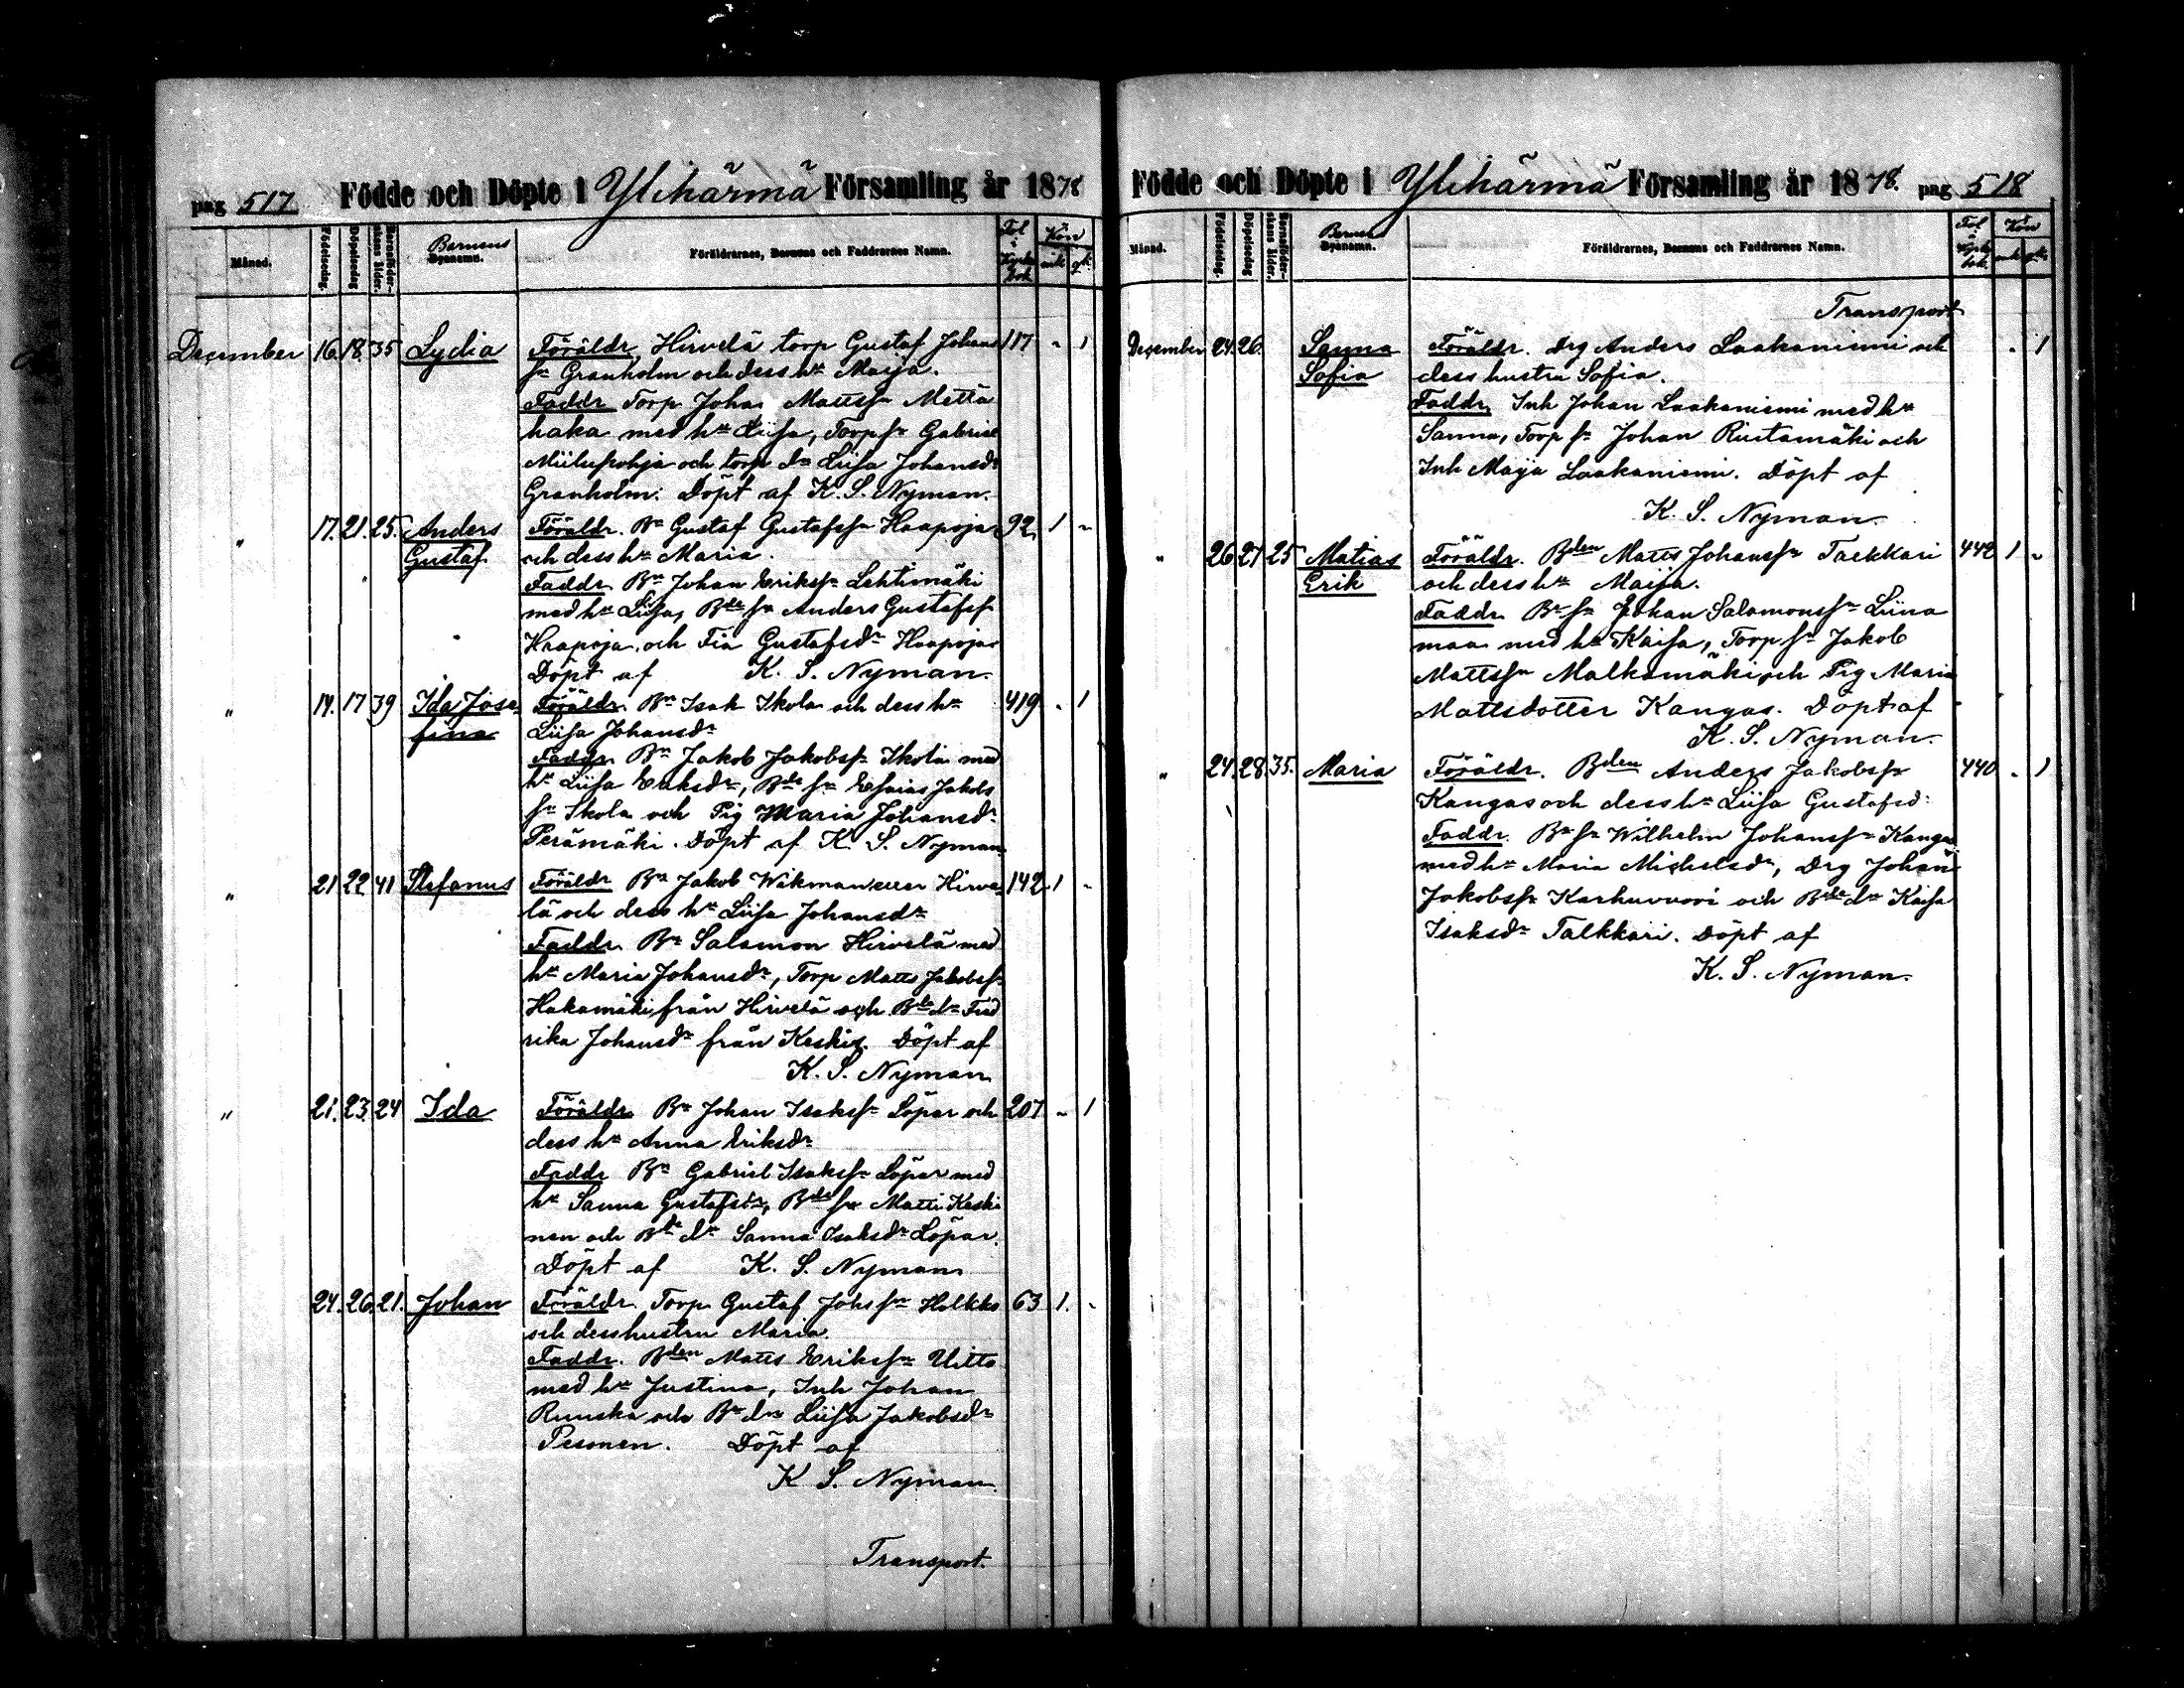 pag 517 Födde och Döpte i Ylihärmä Församling år 1878
Månad. Födelsedag. Döpelsedag Barnaföderskans ålder. Barnens Byanamn. Föräldrarnes, Barnens och Faddrarnes Namn. Fol i Kyrko bok Kön mk qk.
December 16. 18. 35 Lydia Föräldr Hirvelä torp Gustaf Johans 117 " 1
sn Granholm och dess hu Maija.
Faddr Torp Johan Mattssn Mettä
haka med hu Liisa, Torp sn Gabriel
Miilupohja och torp dr Liisa Johansdr
Granholm. Döpt af K. S. Nyman.
" 17. 21. 25. Anders Föräldr. Bn Gustaf Gustafssn Haapoja 92 1 "
Gustaf och dess hu Maria.
Faddr Bn Johan Erikssn Lehtimäki
med hu Liisa, Bde sn Anders Gustafssn
Haapoja, och Fia Gustafsdr Haapoja
Döpt af K. S. Nyman.
" 14. 17 39 Ida Jose- Föräldr. Bn Isak Ikola och dess hu 419 " 1
fina Liisa Johansdr
Faddr. Bn Jakob Jakobssn Ikola med
hu Liisa Eriksdr, Bde sn Esaias Jakobs
sn Ikola och Pig Maria Johansdr
Perämäki. Döpt af K. S. Nyman.
" 21 22 41 Stefanus Föräldr Bn Jakob Wikman eller Hirve- 142 1 "
lä och dess hu Liisa Johansdr
Faddr. Bn Salamon Hirvelä med
hu Maria Johansdr, Torp Matts Jakobssn
Hakamäki från Hirvelä och Bde dr Fred
rika Johansdr från Keskis. Döpt af
K. S. Nyman
" 21. 23. 24 Ida Föräldr Bn Johan Isakssn Löpar och 207 " 1
dess hu Anna Eriksdr
Faddr Bn Gabriel Isakssn Löpar med
hu Sanna Gustafsdr, Bde sn Matti Keski
nen och Bde dr Sanna Isaksdr Löpar.
Döpt af K. S. Nyman
24. 26. 21. Johan Föräldr. Torp Gustaf Johssn Holkko 63 1. "
och dess hustru Maria.
Faddr. Bden Matts Erikssn Uitto
med hu Justina, Inh Johan
Ruuska och Bn dr Liisa Jakobsdr
Pesonen. Döpt af
K S. Nyman.
Transport.
Födde och Döpte i Ylihärmä Församling år 1878. pag 518
Månad. Födelsedag. Döpelsedag Barnaföderskans ålder. Barnens Byanamn. Föräldrarnes, Barnens och Faddrarnes Namn. Fol i Kyrko bok. Kön mk qk.
Transport
December 24. 26. Sanna Föräldr. Drg Anders Laakaniemi och " 1
Sofia dess hustru Sofia.
Faddr, Inh Johan Laakaniemi med hu
Sanna, Torp sn Johan Riistamäki och
Inh Maija Laakaniemi. Döpt af
K. S. Nyman.
" 26 27 25 Matias Föräldr. Bden Matts Johanssn Talkkari 442 1 "
Erik och dess hu Maija.
Faddr. Bn sn Johan Salamonssn Liina
maa med hu Kaisa, Torp sn Jakob
Mattssn Malkamäki och Pig Maria
Mattsdotter Kangas. Döpt af
K. S. Nyman.
" 24. 28. 35. Maria Föräldr. Bden Anders Jakobssn 440 " 1
Kangas och dess hu Liisa Gustafsd.
Faddr. Bn sn Wilhelm Johanssn Kangas
med hu Maria Michelsdr, Drg Johan
Jakobssn Karhuvuori och Bde dr Kaisa
Isaksdr Talkkari. Döpt af
K. S. Nyman.